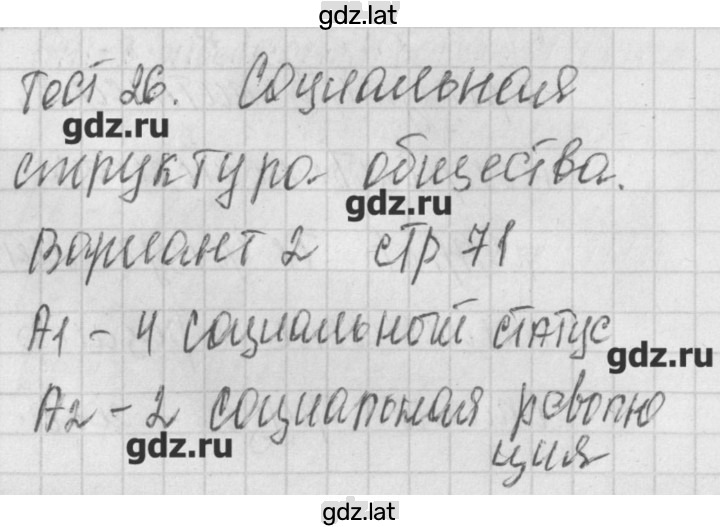 gdz.lat
Тест 26. Социальная
gdz.ru
структура общества.
gdz.ru
Вариант 2 стр 71
А1 - 4 социальный статус
gdz.ru
А2 - 2 социальная револю
gdz.ru
ция
gdz.lat